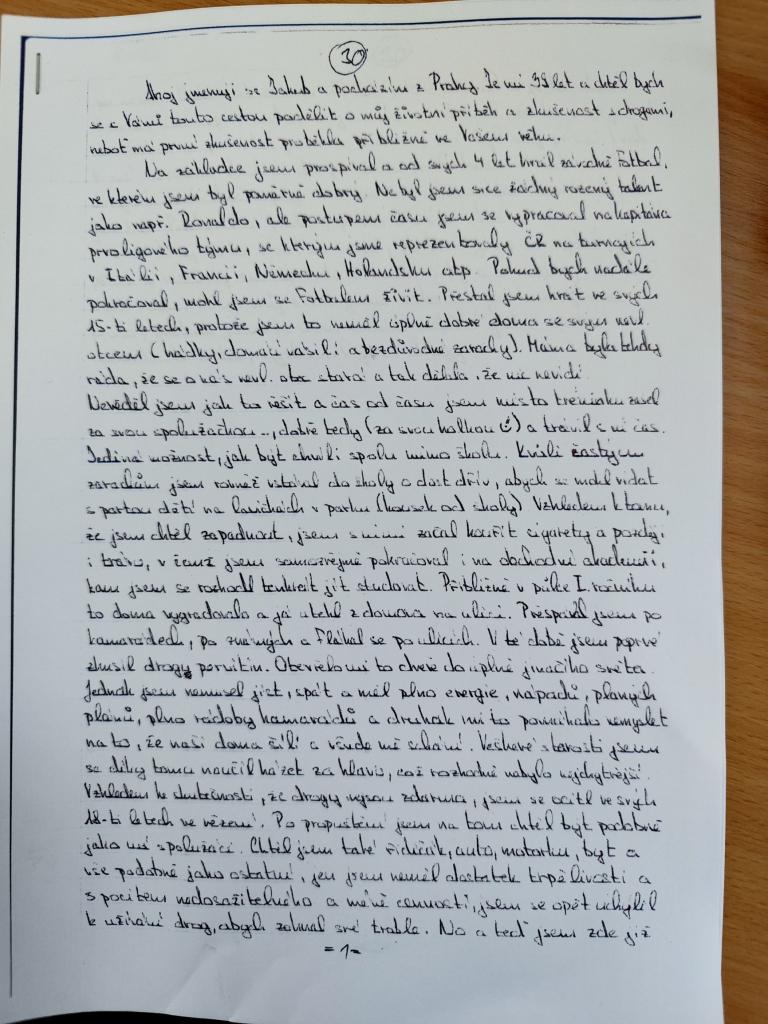 30
Ahoj jmenuji se Jakub a pocházím z Prahy. Je mi 39 let a chtěl bych
se s Vámi touto cestou podělit o můj životní příběh a zkušenost s drogami,
neboť má první zkušenost proběhla přibližně ve Vašem věku.
Na základce jsem prospíval a od svých 4 let hrál závodně fotbal,
ve kterém jsem byl poměrně dobrý. Nebyl jsem sice žádný rozený talent
jako např. Ronaldo, ale postupem času jsem se vypracoval na kapitána
prvoligového týmu, se kterým jsme reprezentovaly ČR na turnajích
v Itálii, Francii, Německu, Holandsku atp. Pokud bych nadále
pokračoval, mohl jsem se Fotbalem živit. Přestal jsem hrát ve svých
15-ti letech, protože jsem to neměl úplně dobré doma se svým nevl.
otcem (hádky, domácí násilí a bezdůvodné zarachy). Máma byla tehdy
ráda, že se o nás nevl. otec stará a tak dělala, že nic nevidí.
Nevěděl jsem jak to řešit a čas od času jsem místo tréninku zašel
za svou spolužačkou.., dobře tedy (za svou holkou) a trávil s ní čas.
Jediná možnost, jak být chvíli spolu mimo školu. Kvůli častým
zarachům jsem rovněž vstával do školy o dost dřív, abych se mohl vídat
s partou dětí na lavičkách v parku (kousek od školy) Vzhledem k tomu,
že jsem chtěl zapadnout, jsem s nimi začal kouřit cigarety a pozděj.
i trávu, v čemž jsem samozřejmě pokračoval i na obchodní akademii,
kam jsem se rozhodl tenkrát jít studovat. Přibližně v půlce I. ročníku
to doma vygradovalo a já utekl z domova na ulici. Přespával jsem po
kamarádech, po známých a flákal se po ulicích. V té době jsem poprvé
zkusil drogy pervitin. Otevřelo mi to dveře do úplně jinačího světa.
Jednak jsem nemusel jíst, spát a měl plno energie, nápadů, planých
plánů, plno rádoby kamarádů a druhak mi to pomáhalo nemyslet
na to, že naši doma šílí a všude mě shání. Veškeré starosti jsem
se díky tomu naučil házet za hlavu, což rozhodně nebylo nejchytřejší.
Vzhledem ke skutečnosti, že drogy nejsou zdarma, jsem se ocitl ve svých
18-ti letech ve vězení. Po propuštění jsem na tom chtěl být podobně
jako mí spolužáci. Chtěl jsem také řidičák, auto, motorku, byt a
vše podobně jako ostatní, jen jsem neměl dostatek trpělivosti a
s pocitem nedosažitelného a méně cennosti, jsem se opět uchýlil
k užívání drog, abych zahnal své trable. No a teď jsem zde již
=1=